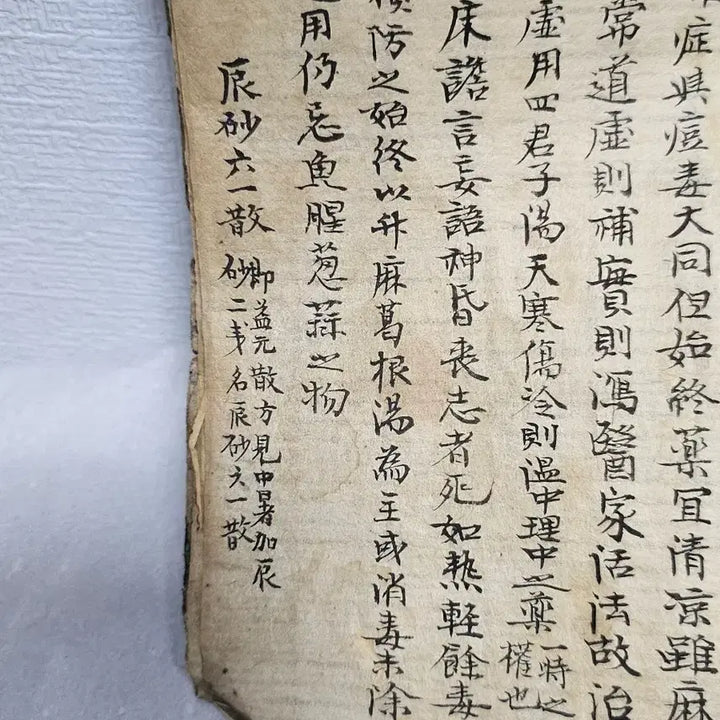 症與痘毒大同但始終藥宜清凉雖麻
常道虛則補實則瀉醫家活法故治
虛用四君子湯天寒傷冷則溫中理中之藥一時之權也
床譫言妄語神昏喪志者死如熱輕餘毒
防之始終以升麻葛根湯為主或消毒未除
用仍忌魚腥葱蒜之物
辰砂六一散即益元散方見中暑加辰砂二戔名辰砂六一散